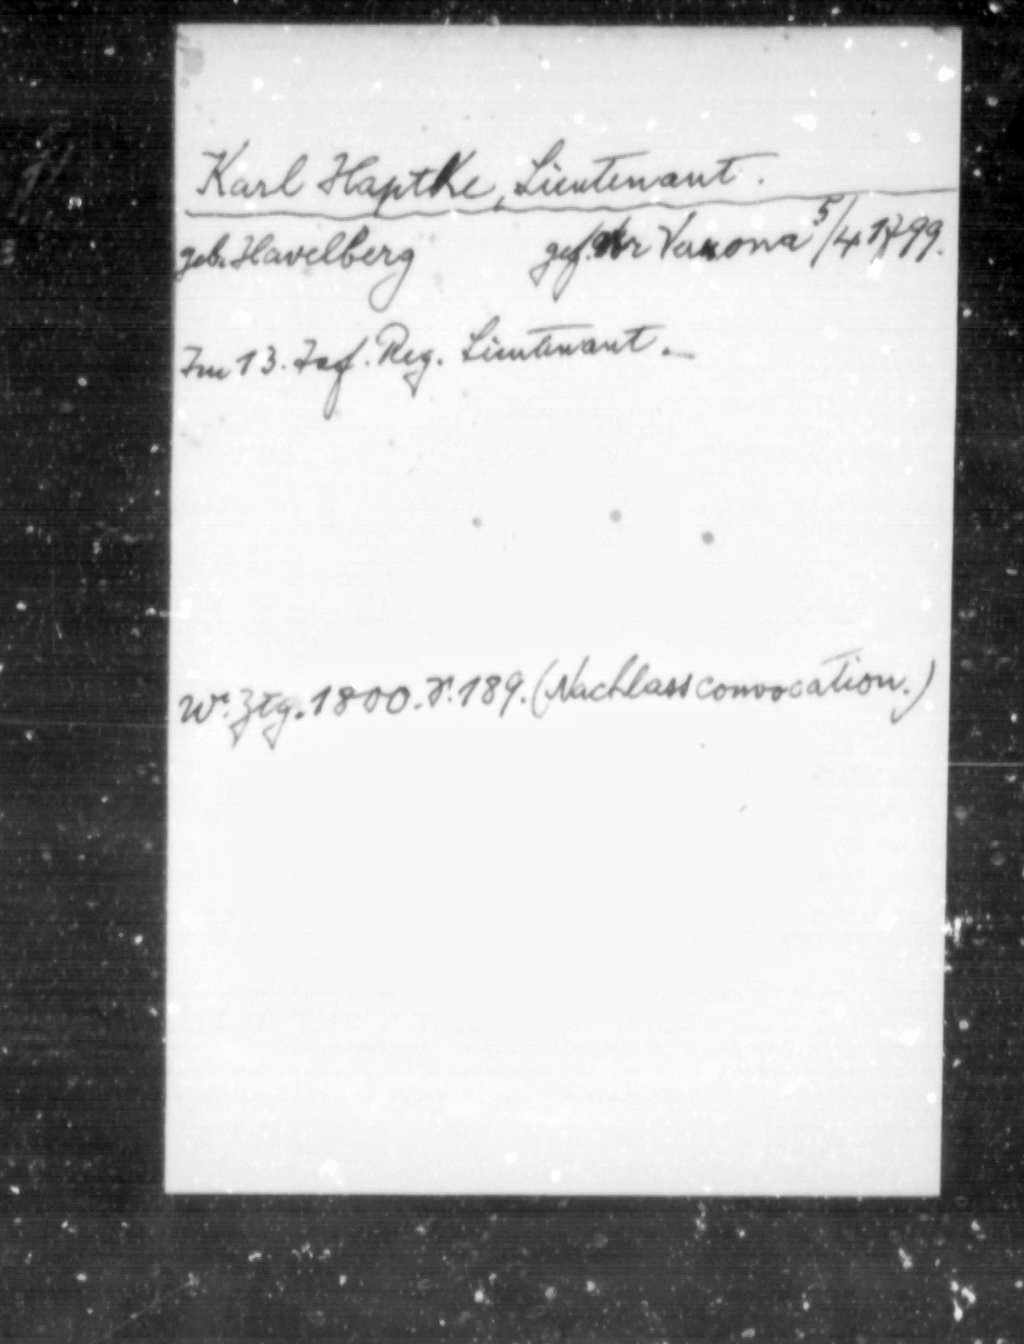 Karl Haptke, Lieutenant.
geb. Havelberg gef. Verona 5/4 1799.
Im 13. Inf. Reg. Lieutenant.
Wr. Ztg. 1800. S. 189. (Nachlassconvocation.)